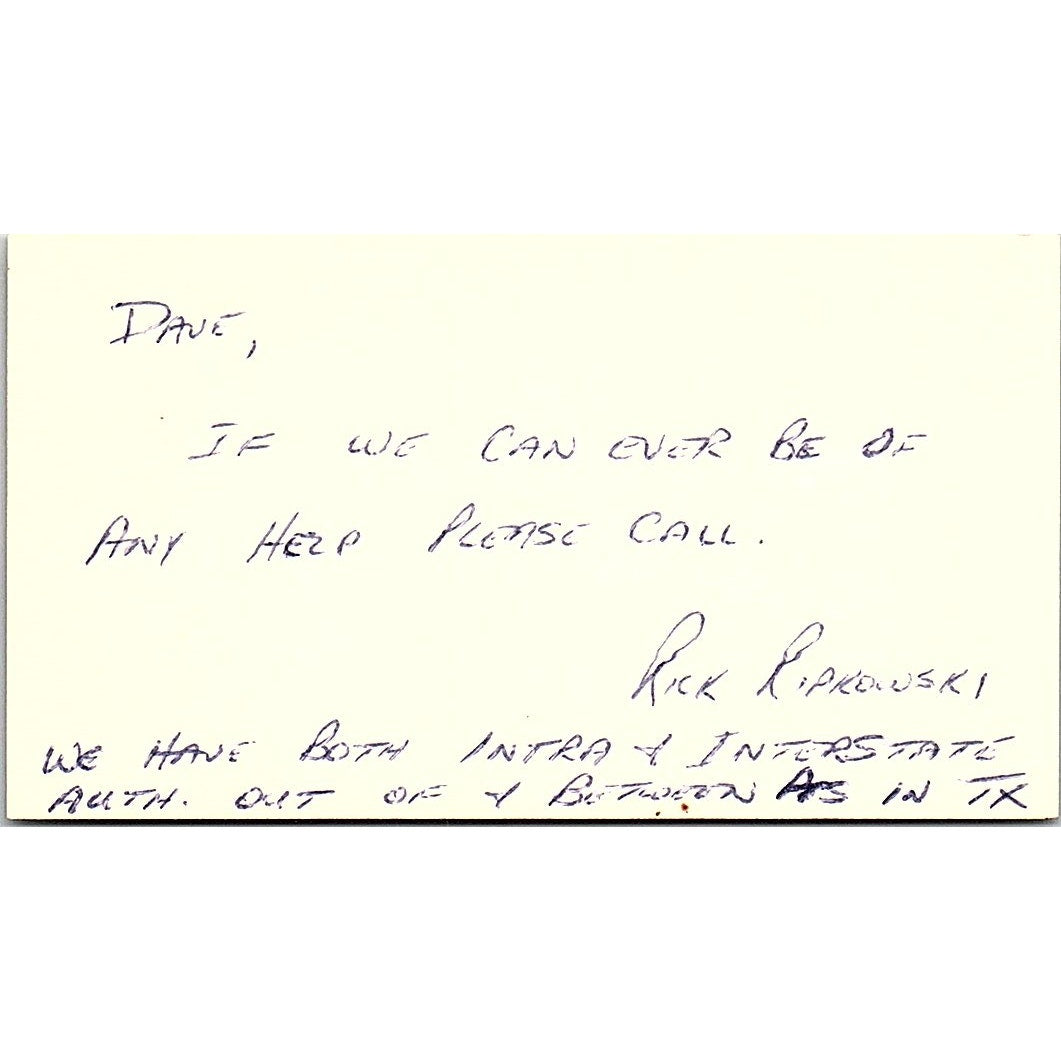 DAVE,
IF WE CAN EVER BE OF
ANY HELP PLEASE CALL.
RICK RIPKOWSKI
WE HAVE BOTH INTRA & INTERSTATE
AUTH. OUT OF & BETWEEN IN TX